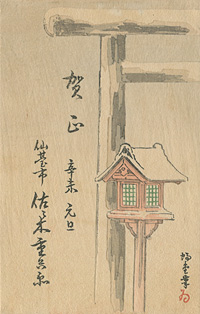 賀正
辛未 元旦
仙臺市
佐々木重兵衛